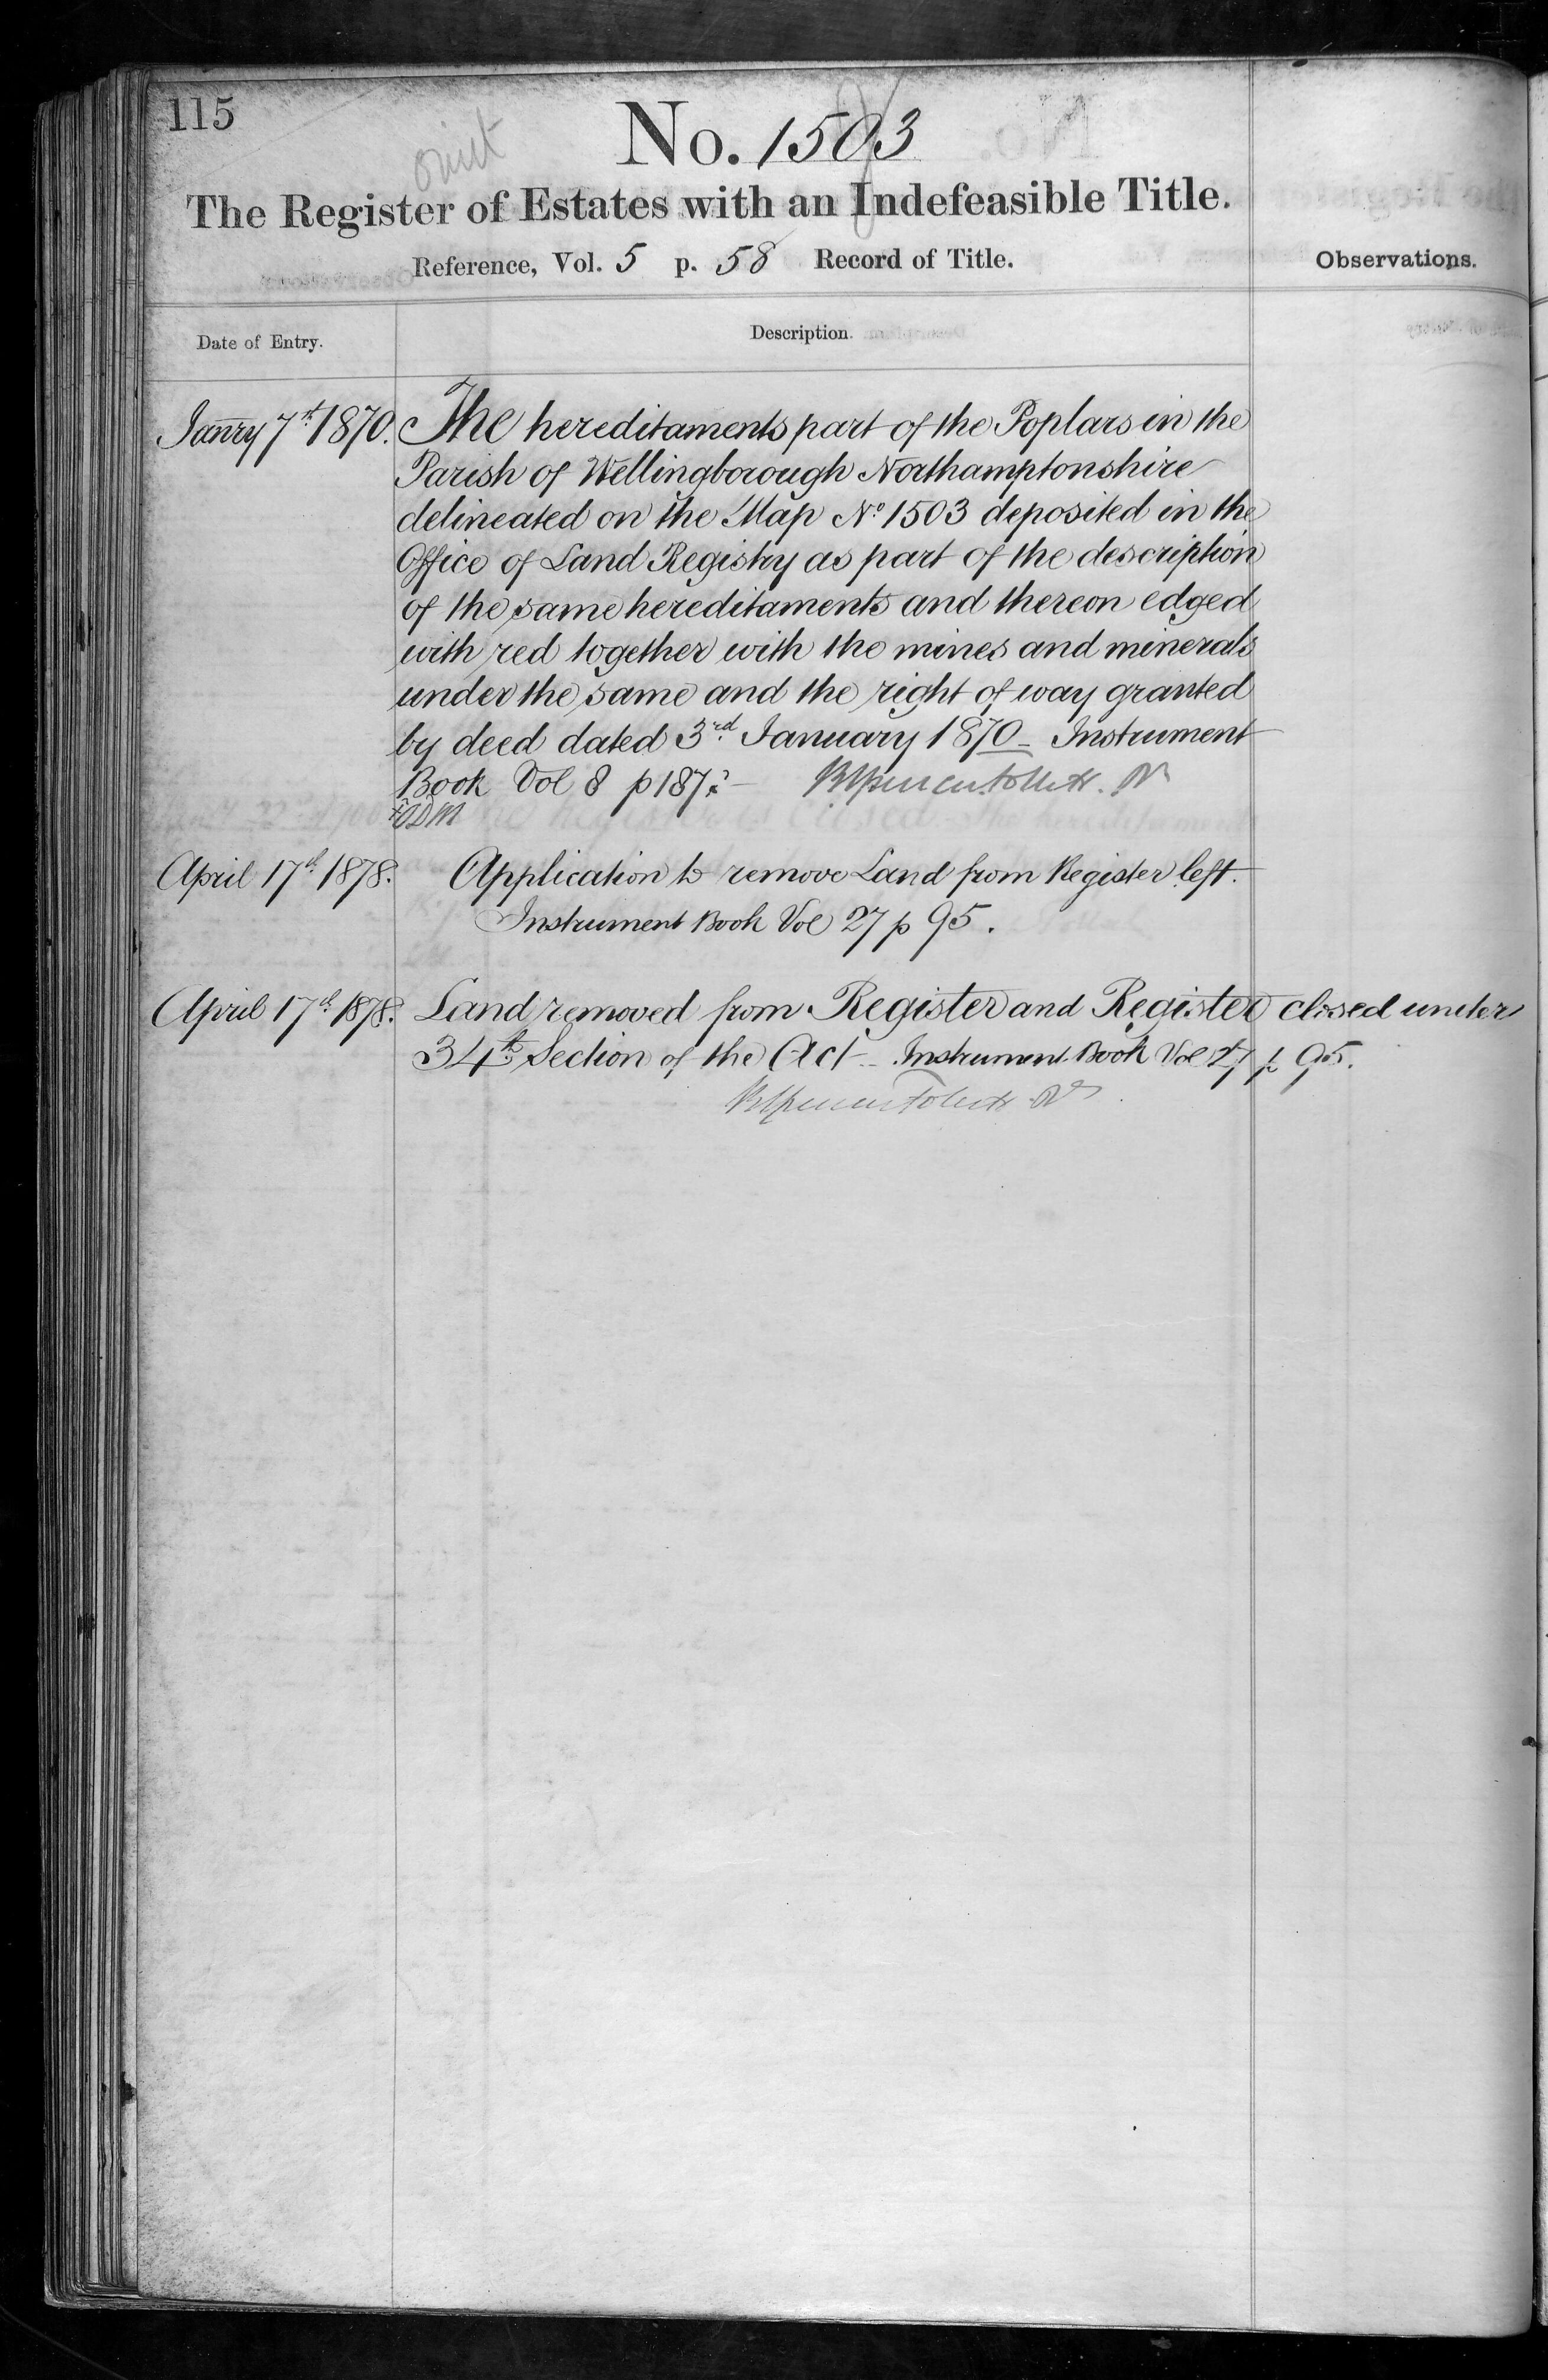 115
No. 1503
omit
The Register of Estates with an Indefeasible Title.
Reference, Vol. 5 p. 58 Record of Title.
Observations.
Date of Entry.
Description.
Janry 7th 1870. The hereditaments part of the Poplars in the
Parish of Wellingborough Northamptonshire
delineated on the Map No 1503 deposited in the
Office of Land Registry as part of the description
of the same hereditaments and thereon edged
with red together with the mines and minerals
under the same and the right of way granted
by deed dated 3rd January 1870 - Instrument
Book Vol 8 p 187.
April 17th 1878. Application to remove Land from Register left.
Instrument Book Vol 27 p 95.
April 17th 1878. Land removed from Register and Register closed under
34th Section of the Act - Instrument Book Vol 27 p 95.